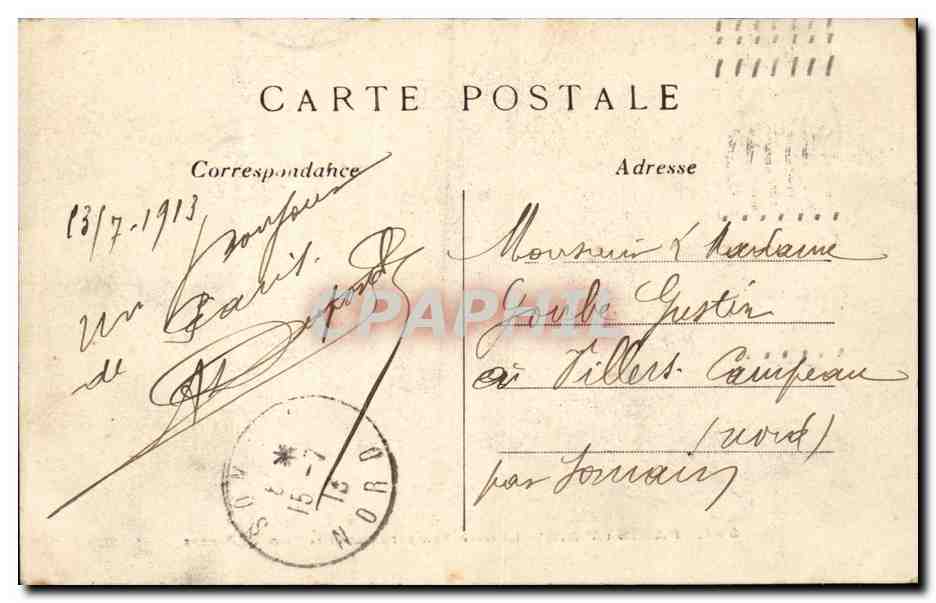 CARTE POSTALE
Correspondance
13/7-1913
un bonjour
de Paris.
A Dupond
Adresse
Monsieur & Madame
Goube Gustin
à Villers-Campeau
(Nord)
par Somain
15-7
13
NORD
CPAPHIL